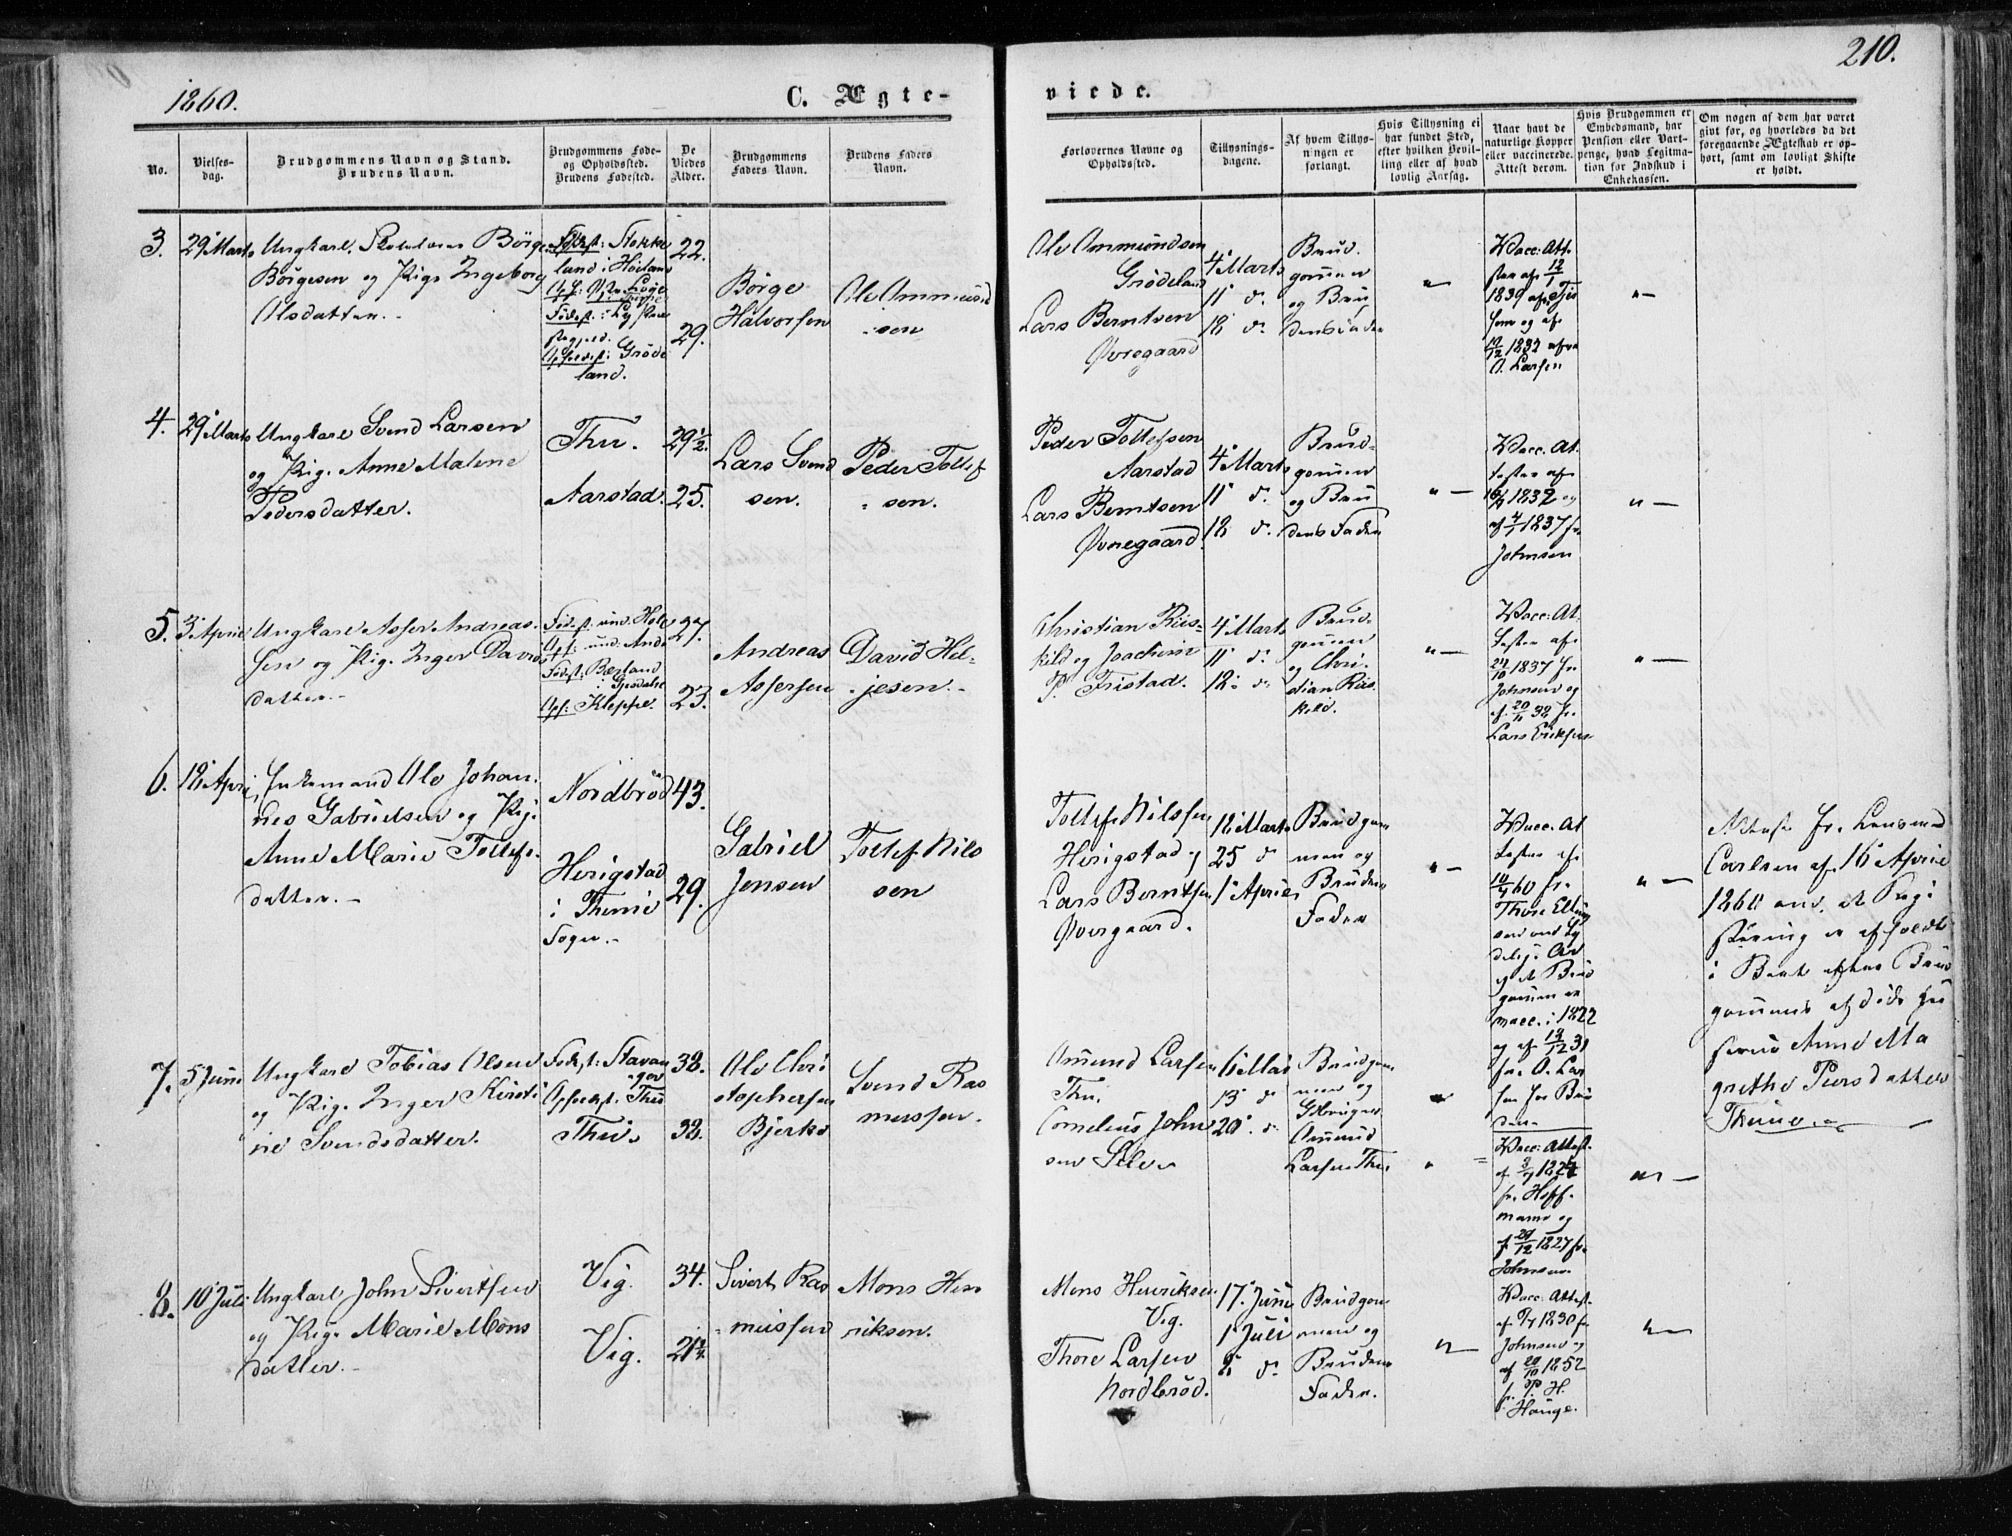 1860.
C. Ægte-
viede.
210.
No.
Vielses-
dag.
Brudgommens Navn og Stand.
Brudens Navn.
Brudgommens Føde-
og Opholdssted.
Brudens Fødested.
De
Viedes
Alder.
Brudgommens
Faders Navn.
Brudens Faders
Navn.
Forlovernes Navne og
Opholdssted.
Tillysnings-
dagene.
Af hvem Tillys-
ningen er
forlangt.
Hvis Tillysning ei
har fundet Sted,
efter hvilken Bevil-
ling eller af hvad
lovlig Aarsag.
Naar havt de
naturlige Kopper
eller vaccinerede.
Attest derom.
Hvis Brudgommen er
Embedsmand, har
Pension eller Vart-
penge, hvad Legitima-
tion for Indskud i
Enkekassen.
Om nogen af dem har været
givt før, og hvorledes da det
foregaaende Ægteskab er op-
hørt, samt om lovligt Skifte
er holdt.
3.
29 Marts
Ungkarl, Skolelærer Börge
Börgesen og Pige Ingeborg
Olsdatter.
Födest: Stokke
land i Höiland
Födest:
Opholdst: Gröde
land.
22.
29.
Börge
Halvorsen
Ole Ommund
sen
Ole Ommundsen
Grödeland
Lars Berntsen
Øvregaard
4 Marts
11 d.
18 d.
Brud-
gommen
og Bru
dens Fader
"—
Vacc: At-
tester af 12/1
1839 af
og af
10/12 1832 af
O. Larsen
"—
4.
29 Marts
Ungkarl Svend Larsen
og Pige Anne Malene
Pedersdatter.
Thu.
Aarstad.
29½.
25.
Lars Svend
sen.
Peder Tollef
sen.
Peder Tollefsen
Aarstad
Lars Berntsen
Øvregaard.
4 Marts
11 d.
18 d.
Brud-
gommen
og Bru
dens Fader
"—
Vacc. At
tester af
1832 og
af 4/7 1837 fr.
Johnsen
"—
5.
3 April
Ungkarl Asser Andreas-
sen og Pige Inger Davids
datter.
Födest: und. Hole
Oph: und. Anda
Födest: Bærland
i Gjesdahl
Oph: Kleppe.
27.
23.
Andreas
Assersen
David Hel-
jesen.
Christian Riis-
kild og Joachim
P. Tristad.
4 Marts
11 d.
18 d.
Brud-
gommen
og Chri-
stian Riis
kild.
"—
Vacc. At
tester af
24/10 1837 fr.
Johnsen og
af 20/11 38 fr.
Lars Eriksen
"—
6.
18 April
Enkemand Ole Johan-
nes Gabrielsen og Pige
Anne Marie Tollefs-
datter.
Nordbröd
Herigstad
i Thime
Sogn.
43.
29.
Gabriel
Jensen
Tollef Nils
sen
Tollef Nilssen
Herigstad og
Lars Berntsen
Øvergaard.
18 Marts
25 d
1 April
Brudgom
men og
Brudens
Fader
"—
Vacc. At
tester af
10/4 60 fr.
Thore Elling
sen
at Brud
gommen er
vacc. i 1822
og af 13/12 31
fr. O. Lar
sen for Bru
den.
"—
Attest fr. Lensmand
Carlsen af 16 April
1860 om, at Regi
strering er afholdt
i Boet efter Brud
gommens afdöde Hu
strue Anne Ma
grethe Peersdatter
Thime.
7.
5 Juni
Ungkarl Tobias Olsen
og Pige Inger Kirsti
ne Svendsdatter.
Födest: Stavan
ger
Opholdst: Thu
Thu.
38.
32.
Ole Chri
stophersen
Bjerke
Svend Ras
mussen.
Omund Larsen
Thu.
Cornelius John
sen Sele.
6 Mai
13 d
20 d.
Brudgom
men og
Ommund
Larsen Thu
"
Vacc. Attest
af 1824
fr. Hoff-
mann og
af 29/12 1827 fr.
Johnsen.
"—
8.
10 Juli
Ungkarl John Sivertsen
og Pige Marie Mons
datter.
Vig.
Vig.
34.
21½.
Sivert Ras
mussen
Mons Hen
riksen.
Mons Henriksen
Vig.
Thore Larsen
Nordbröd.
17 Juni
1 Juli
8 d.
Brudgom
men og
Brudens
Fader.
"—
Vacc. Attest
af 1830 fr.
Johnsen og
af 20/10 1852
fr. P. H.
Hauge.
"—